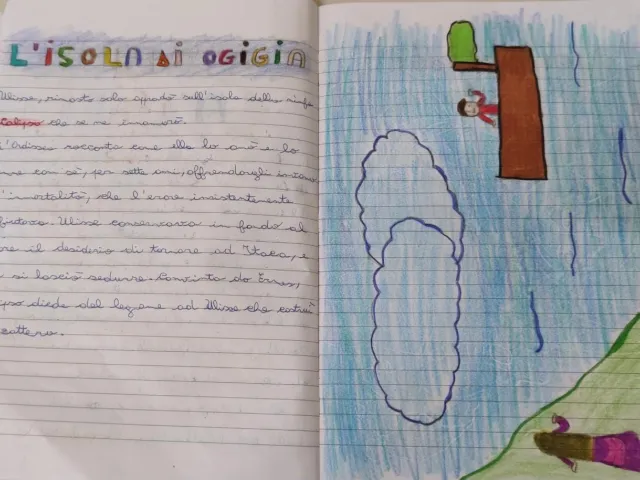 L'ISOLA DI OGIGIA
Ulisse, rimasto solo approdò sull'isola della ninfa
Calipso che se ne innamorò.
L'Odissea racconta come ella lo amò e lo
tenne con sé, per sette anni, offrendogli invano
l'immortalità, che l'eroe insistentemente
rifiutava. Ulisse conservava in fondo al
cuore il desiderio di tornare ad Itaca, e
si lasciò sedurre. Convinta da Ermes,
Calipso diede del legname ad Ulisse che costruì
zattera.